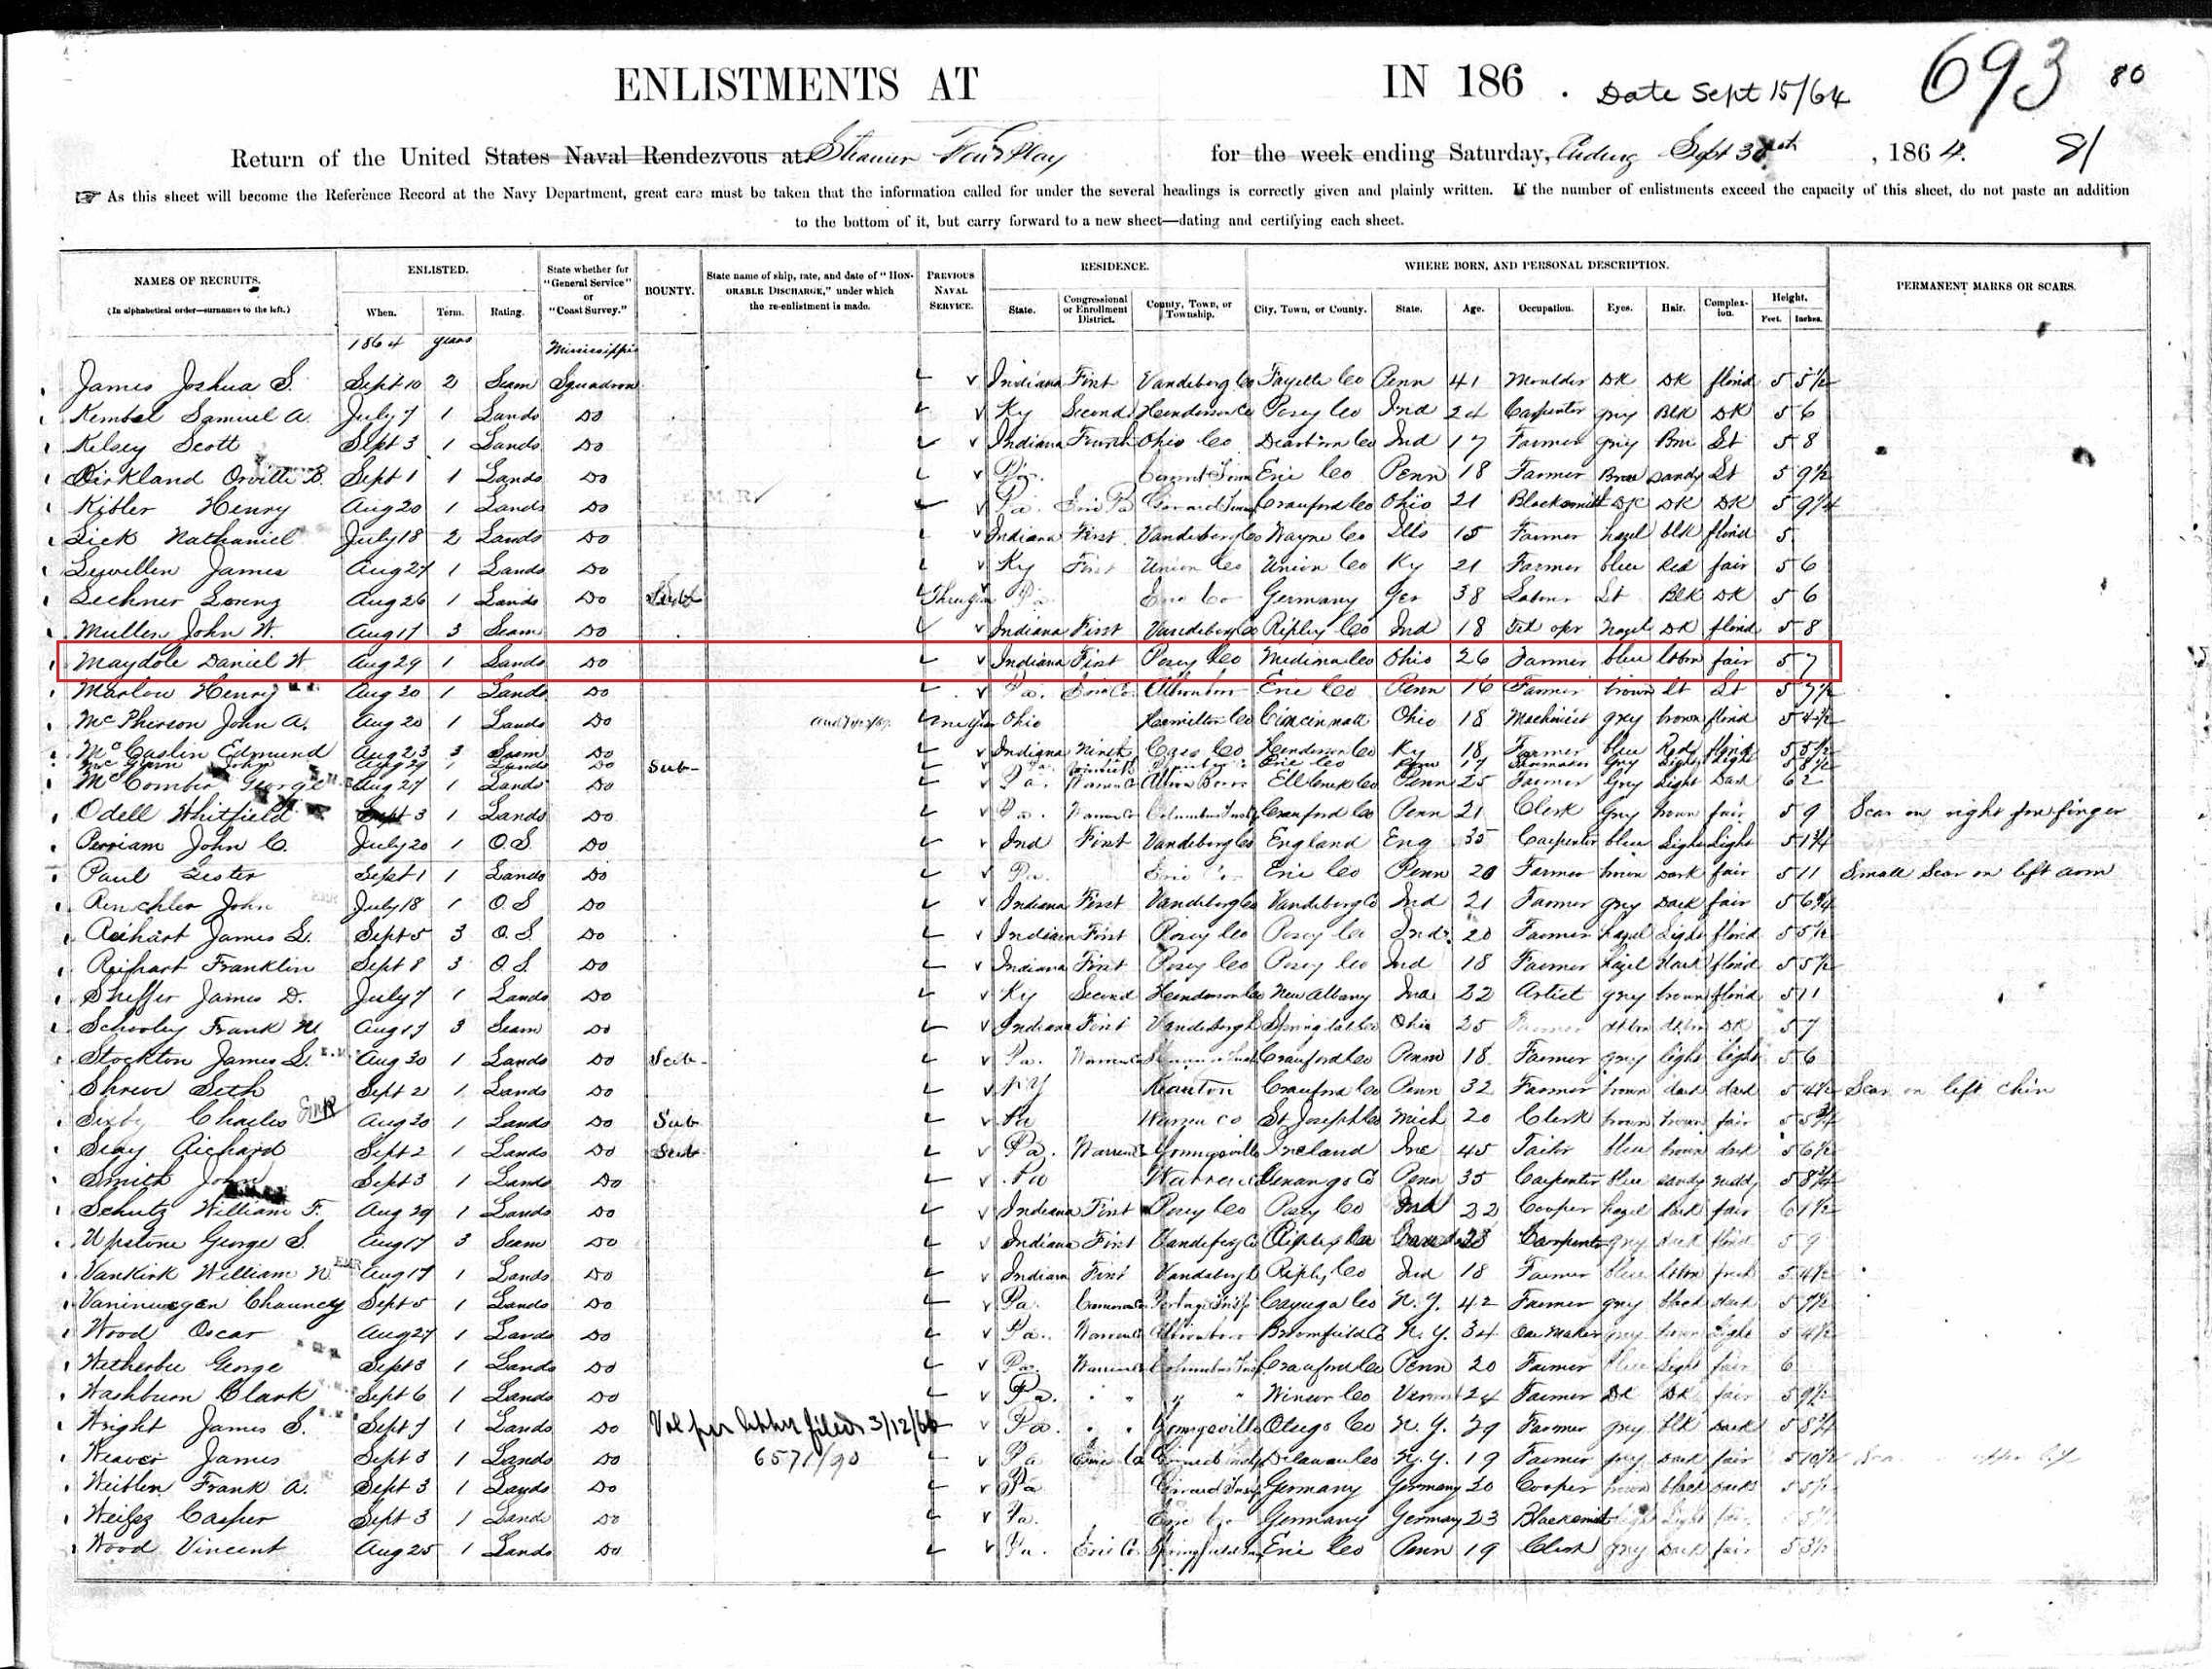 693 80
ENLISTMENTS AT IN 186 . Date Sept 15/64
Return of the United States Naval Rendezvous at Steamer Fair Play for the week ending Saturday, Ending Sept 30 , 1864. 81
As this sheet will become the Reference Record at the Navy Department, great care must be taken that the information called for under the several headings is correctly given and plainly written. If the number of enlistments exceed the capacity of this sheet, do not paste an addition
to the bottom of it, but carry forward to a new sheet—dating and certifying each sheet.
NAMES OF RECRUITS. (In alphabetical order—surnames to the left.) ENLISTED. When. Term. Rating. State whether for "General Service" or "Coast Survey." BOUNTY. State name of ship, rate, and date of "HONORABLE DISCHARGE," under which the re-enlistment is made. PREVIOUS NAVAL SERVICE. RESIDENCE. State. Congressional or Enrollment District. County, Town, or Township. WHERE BORN, AND PERSONAL DESCRIPTION. City, Town, or County. State. Age. Occupation. Eyes. Hair. Complexion. Height. Feet. Inches. PERMANENT MARKS OR SCARS.
1864 years Mississippi
James Joshua S. Sept 10 2 Seam Squadron Indiana First Vandeborg Co Fayette Co Penn 41 Moulder DK DK florid 5 5½
Kembel Samuel A. July 7 1 Lands Do Ky Second Henderson Co Posey Co Ind 24 Carpenter grey Blk DK 5 6
Kelsey Scott Sept 3 1 Lands Do Indiana Fourth Ohio Co Dearborn Co Ind 17 Farmer grey Brn Lt 5 8
Kirkland Orville B. Sept 1 1 Lands Do Pa. Erie Co Penn 18 Farmer Brn Sandy Lt 5 9½
Kibler Henry Aug 20 1 Lands Do Pa. Erie Pa Crawford Co Ohio 21 Blacksmith DK DK DK 5 9¼
Lick Nathaniel July 18 2 Lands Do Indiana First Vandeborg Co Wayne Co Ills 15 Farmer hazel blk florid 5
Lewellen James Aug 27 1 Lands Do Ky First Union Co Union Co Ky 21 Farmer blue Red fair 5 6
Lechner Loreng Aug 26 1 Lands Do Pa Erie Co Germany Ger 38 Labor Lt Blk DK 5 6
Mullen John W. Aug 17 3 Seam Do Indiana First Vandeborg Co Ripley Co Ind 18 Tel opr Hazel DK florid 5 8
Maydole Daniel W Aug 29 1 Lands Do Indiana First Posey Co Medina Co Ohio 26 Farmer blue lt brn fair 5 7
Marlow Henry Aug 20 1 Lands Do Pa. Erie Co. Erie Co Penn 16 Farmer brown Lt Lt 5 7½
McPherson John A. Aug 20 1 Lands Do One Year Ohio Hamilton Co Cincinnati Ohio 18 Machinist grey brown florid 5 4½
McCaslin Edmund Aug 23 3 Seam Do Indiana Ninth Cass Co Henderson Co Ky 18 Farmer blue Red florid 5 5½
John Aug 29 1 Lands Do Sub- Erie Co Penn 17 Grey Light Light 5 8½
McComber George Aug 27 1 Lands Do Pa. Warren Co Penn 25 Farmer Grey Light Dark 6 2
Odell Whitfield Sept 3 1 Lands Do Pa. Warren Co Columbus Crawford Co Penn 21 Clerk Grey brown fair 5 9 Scar on right fore finger
Perriam John C. July 20 1 O.S. Do Ind First Vandeborg Co England Eng 35 Carpenter blue Light Light 5 1¾
Paul Lester Sept 1 1 Lands Do Pa. Erie Co Erie Co Penn 20 Farmer brown Dark fair 5 11 Small Scar on left arm
Renchler John July 18 1 O.S Do Indiana First Vandeborg Co Vandeborg Co Ind 21 Farmer grey Dark fair 5 6¾
Reihart James L. Sept 5 3 O.S. Do Indiana First Posey Co Posey Co Ind. 20 Farmer hazel Light florid 5 5½
Reihart Franklin Sept 8 3 O.S. Do Indiana First Posey Co Posey Co Ind 18 Farmer hazel dark florid 5 5½
Sheffer James D. July 7 1 Lands Do Ky Second Henderson Co New Albany Ind 22 Artist grey brown florid 5 11
Schooley Frank Aug 17 3 Seam Do Indiana First Vandeborg Ohio 25 DK 5 7
Stockton James L. Aug 30 1 Lands Do Sub- Pa. Warren Co Crawford Co Penn 18 Farmer grey light light 5 6
Shreve Seth Sept 2 1 Lands Do NY Crawford Co Penn 32 Farmer brown dark dark 5 4½ Scar on left chin
Charles Aug 30 1 Lands Do Sub Pa Warren Co St Joseph Co Mich 20 Clerk brown brown fair 5 5¾
Seay Richard Sept 2 1 Lands Do Sub Pa. Warren Co Youngsville Ireland Ire 45 Tailor blue brown dark 5 6½
Smith John Sept 3 1 Lands Do Pa Warren Co Venango Co Penn 35 Carpenter blue sandy ruddy 5 8¾
Schutz William F. Aug 29 1 Lands Do Indiana First Posey Co Posey Co Ind 22 Cooper hazel Dark fair 6 1½
Upstone George S. Aug 17 3 Seam Do Indiana First Carpenter grey dark florid 5 9
Vankirk William N Aug 17 1 Lands Do Indiana First Vandeborg Ripley Co Ind 18 Farmer blue lt brn fresh 5 4½
Vaninwegen Chauncey Sept 5 1 Lands Do Pa. Cayuga Co N.Y. 42 Farmer grey black dark 5 7½
Wood Oscar Aug 27 1 Lands Do Pa. Warren Co N.Y. 34 Oar Maker grey brown Light 5 4½
Wetherbee George Sept 3 1 Lands Do Pa. Warren Co Columbus Crawford Co Penn 20 Farmer blue Light fair 6
Washburn Clark Sept 6 1 Lands Do Pa. " " " " Winsor Co Vermt 24 Farmer DK DK fair 5 9½
Wright James S. Sept 7 1 Lands Do Vol per letter filed 3/12/66 Pa. " " Youngsville Otsego Co N.Y. 29 Farmer grey blk Dark 5 8¾
Weaver James Sept 3 1 Lands Do 6571/90 Pa Erie Co Delaware Co N.Y. 19 Farmer grey Dark fair 5 10½
Weiblen Frank A. Sept 3 1 Lands Do Pa Germany Germany 20 Cooper brown black dark 5 5½
Casper Sept 3 1 Lands Do Pa. Erie Co Germany Germany 23 Blacksmith
Wood Vincent Aug 25 1 Lands Do Pa. Erie Co Erie Co Penn 19 Clerk grey Dark fair 5 3½